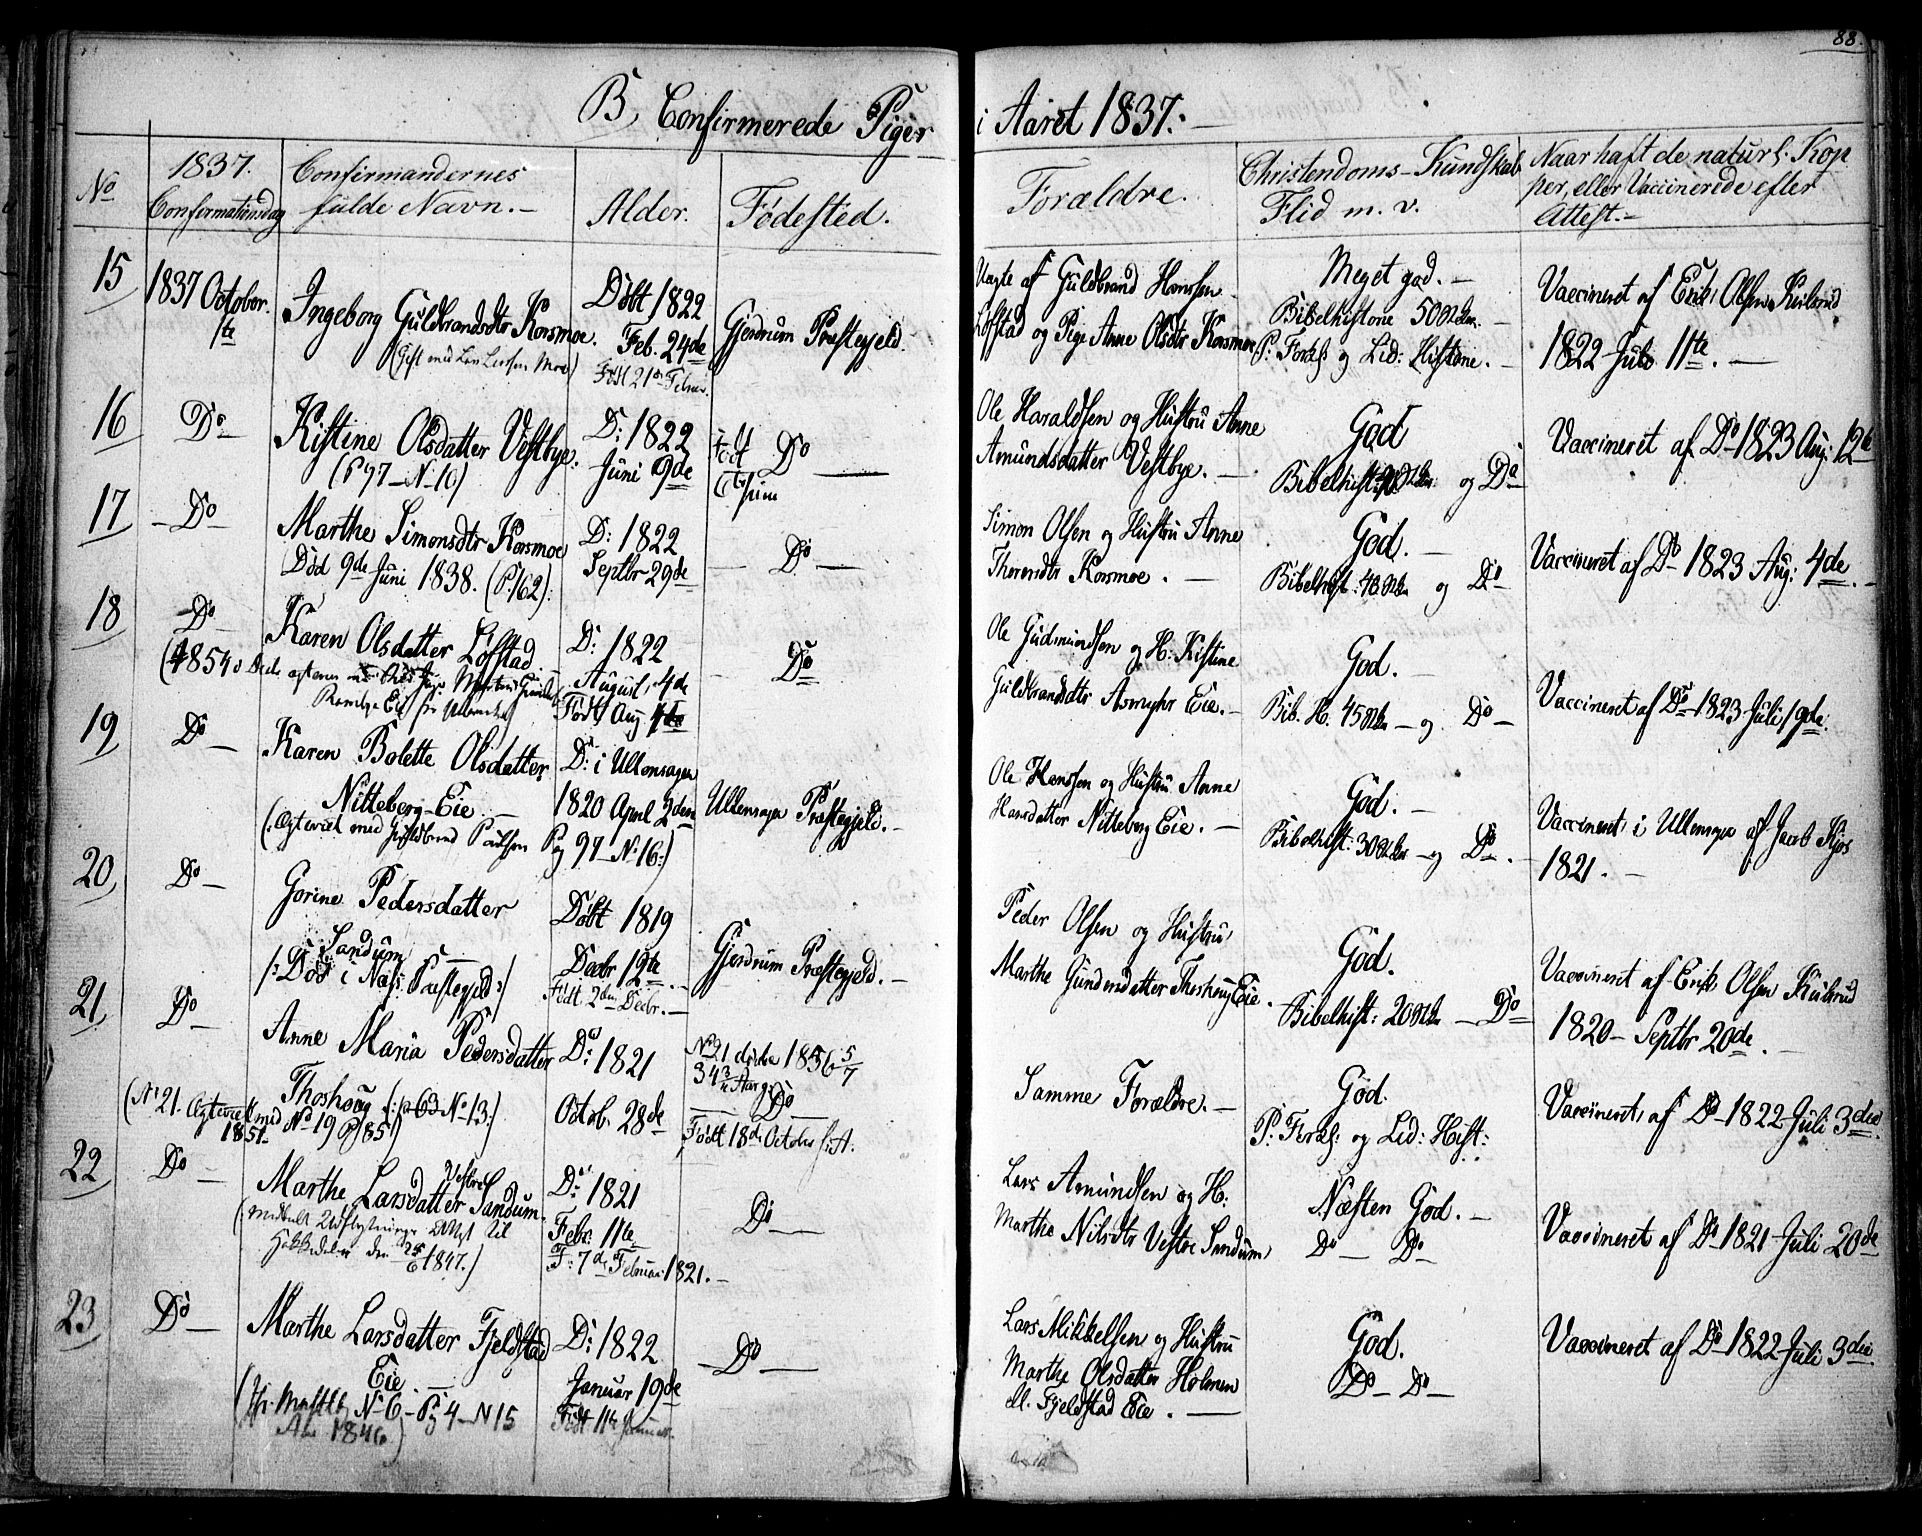 88.
B, Confirmerede Piger i Aaret 1837.
No
1837. Confirmationsdag
Confirmandernes fulde Navn.
Alder.
Fødested.
Forældre.
Christendoms-Kundskab Flid m. v.
Naar haft de naturl. Kop
per, eller Vaccinerede efter
Attest.
15
1837 October 1ste
Ingeborg Guldbrandsdtr Korsmoe.
(Gift med Moe)
Døbt 1822
Feb. 24de
Født 21de Februar.
Gjerdrum Præstegjeld.
Uægte af Guldbrand Hanssen
Løfstad og Pige Anne Olsdtr Korsmoe
Meget god.
Bibelhistorie
P: Foræl: og Lid: Historie.
Vaccineret af Erik Olsen Kulsrud
1822 Juli 11te.
16
Do
Kistine Olsdatter Vestbye.
(P 97 N. 10)
D: 1822
Juni 9de
født
Do
Ole Haraldsen og Hustru Anne
Amundsdatter Vestbye.
God
Bibelhist: og Do
Vaccineret af Do 1823 Aug: 12te
17
Do
Marthe Simonsdtr Korsmoe
Død 9de Juni 1838. (P. 162)
D: 1822
Septbr 29de
Do
Simon Olsen og Hustru Anne
Thorendtr Korsmoe.
God.
Bibelhist: og Do
Vaccineret af Do 1823 Aug: 4de
18
Do
Karen Olsdatter Løfstad
(1854
D: 1822
August 4de
Født Aug
Do
Ole Gudmundsen og H: Kistine
Guldbrandsdtr Asmyhr Eie.
God.
Bib. H. og Do
Vaccineret af Do 1823 Juli 19de.
19
Do
Karen Bolette Olsdatter
Nitteberg-Eie
(:Ægteviet med Guldbrand Paulsen Pag 97 No 16:)
D: i Ullensager
1820 April 2den
Ullensager Præstegjeld.
Ole Hanssen og Hustru Anne
Hansdatter Nitteberg Eie.
God.
Bibelhist: og Do
Vaccineret i Ullensager af Jacob Kjos
1821.
20
Do
Gorine Pedersdatter
Sandum
/:Død i Næs Præstegjeld:/
Døbt 1819
Decbr 12te
Født 2den Decbr.
Gjerdrum Præstegjeld.
Peder Olsen og Hustru
Marthe Thoshoug Eie.
God.
Bibelhist: Do
Vaccineret af Erik Olsen Kulsrud
1820 Septbr 20de.
21
Do
Anne Maria Pedersdatter
Thoshoug (:p 63 No 13:)
(No 21. Ægteviet med No 19 P 85)
1851
Do: 1821
Octob. 28de
No 21 døde 1856 5/7
34 Aar
Do
Født 18de October
Samme Forældre.
God.
P: Foræl: og Lid: Hist:
Vaccineret af Do 1822 Juli 3die
22
Do
Marthe Larsdatter Vestre Sandum.
(:Meddelt Udflytnings Attest til
Hakkedalen den 1847.)
Do: 1821
Febr: 11te
F: 7de Februar 1821.
Do
Lars Amundsen og H:
Marthe Nilsdtr Vestre Sandum
Næsten God.
Do Do
Vaccineret af Do 1821 Juli 20de
23
Do
Marthe Larsdatter Fjeldstad
Eie
No 6 Pag 4 N 15
1846)
D: 1822
Januar 19de
Født 11te Januar
Do
Lars Mikkelsen og Hustru
Marthe Olsdatter Holmen
ell. Fjeldstad Eie.
God.
Do Do
Vaccineret af Do 1822 Juli 3die